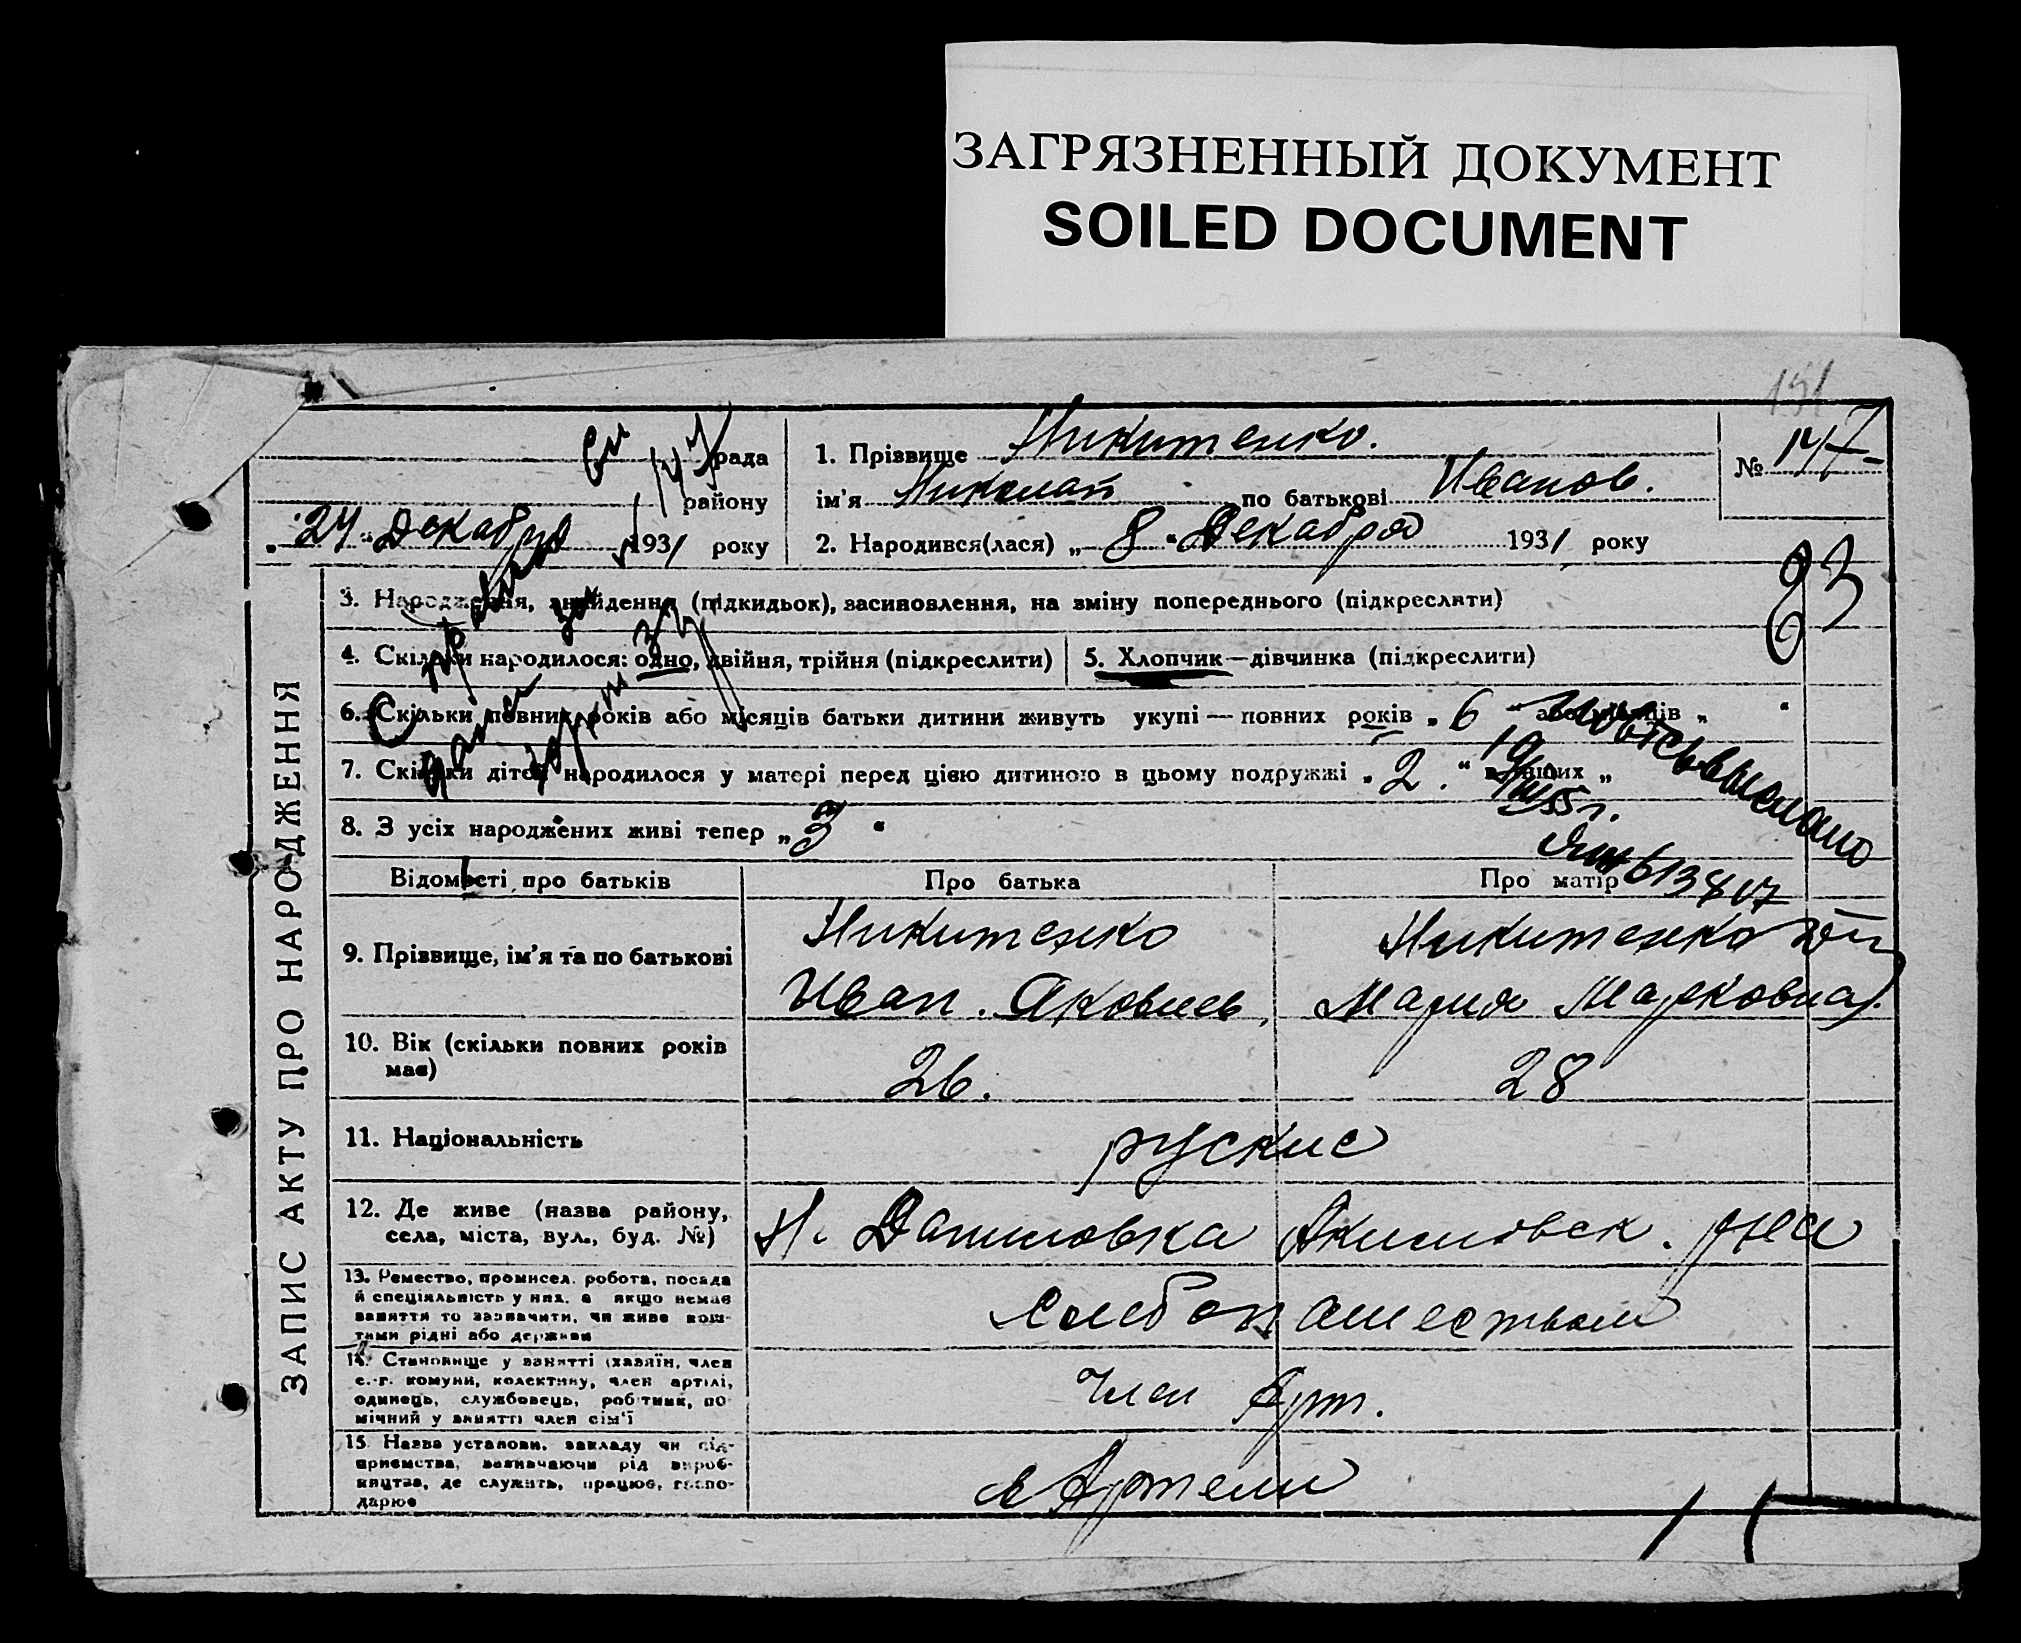 ЗАГРЯЗНЕННЫЙ ДОКУМЕНТ
SOILED DOCUMENT
151
рада
району
„24“ Декабря 1931 року
1. Прізвище Никитенко.
ім'я Николай по батькові Иванов.
№ 147
2. Народився(лася) „8“ Декабря 1931 року
83
ЗАПИС АКТУ ПРО НАРОДЖЕННЯ
3. Народження, знайдення (підкидьок), засиновлення, на зміну попереднього (підкреслити)
4. Скільки народилося: одно, двійня, трійня (підкреслити)
5. Хлопчик—дівчинка (підкреслити)
6. Скільки повних років або місяців батьки дитини живуть укупі — повних років „6“
7. Скільки дітей народилося у матері перед цією дитиною в цьому подружжі „2.“ в інших „
8. З усіх народжених живі тепер „3“
Відомості про батьків
Про батька
Про матір
613407
9. Прізвище, ім'я та по батькові
Никитенко
Иван. Яковлев,
Никитенко
Мария Марковна
10. Вік (скільки повних років має)
26.
28
11. Національність
руские
12. Де живе (назва району,
села, міста, вул., буд. №)
Н. Даниловка Акимовск. р-на
13. Ремество, промисел, робота, посада
й спеціяльність у них, а якщо немає
заняття то зазначити, чи живе кош-
тами рідні або держави
хлебопашеством
14. Становище у занятті (хазяїн, член
с.-г. комуни, колективу, член артілі,
одинець, службовець, робітник, по-
мічний у занятті член сім'ї
Член Арт.
15. Назва установи, закладу чи під-
приємства, зазначаючи рід вироб-
ництва, де служить, працює, госпо-
дарює
в Артели